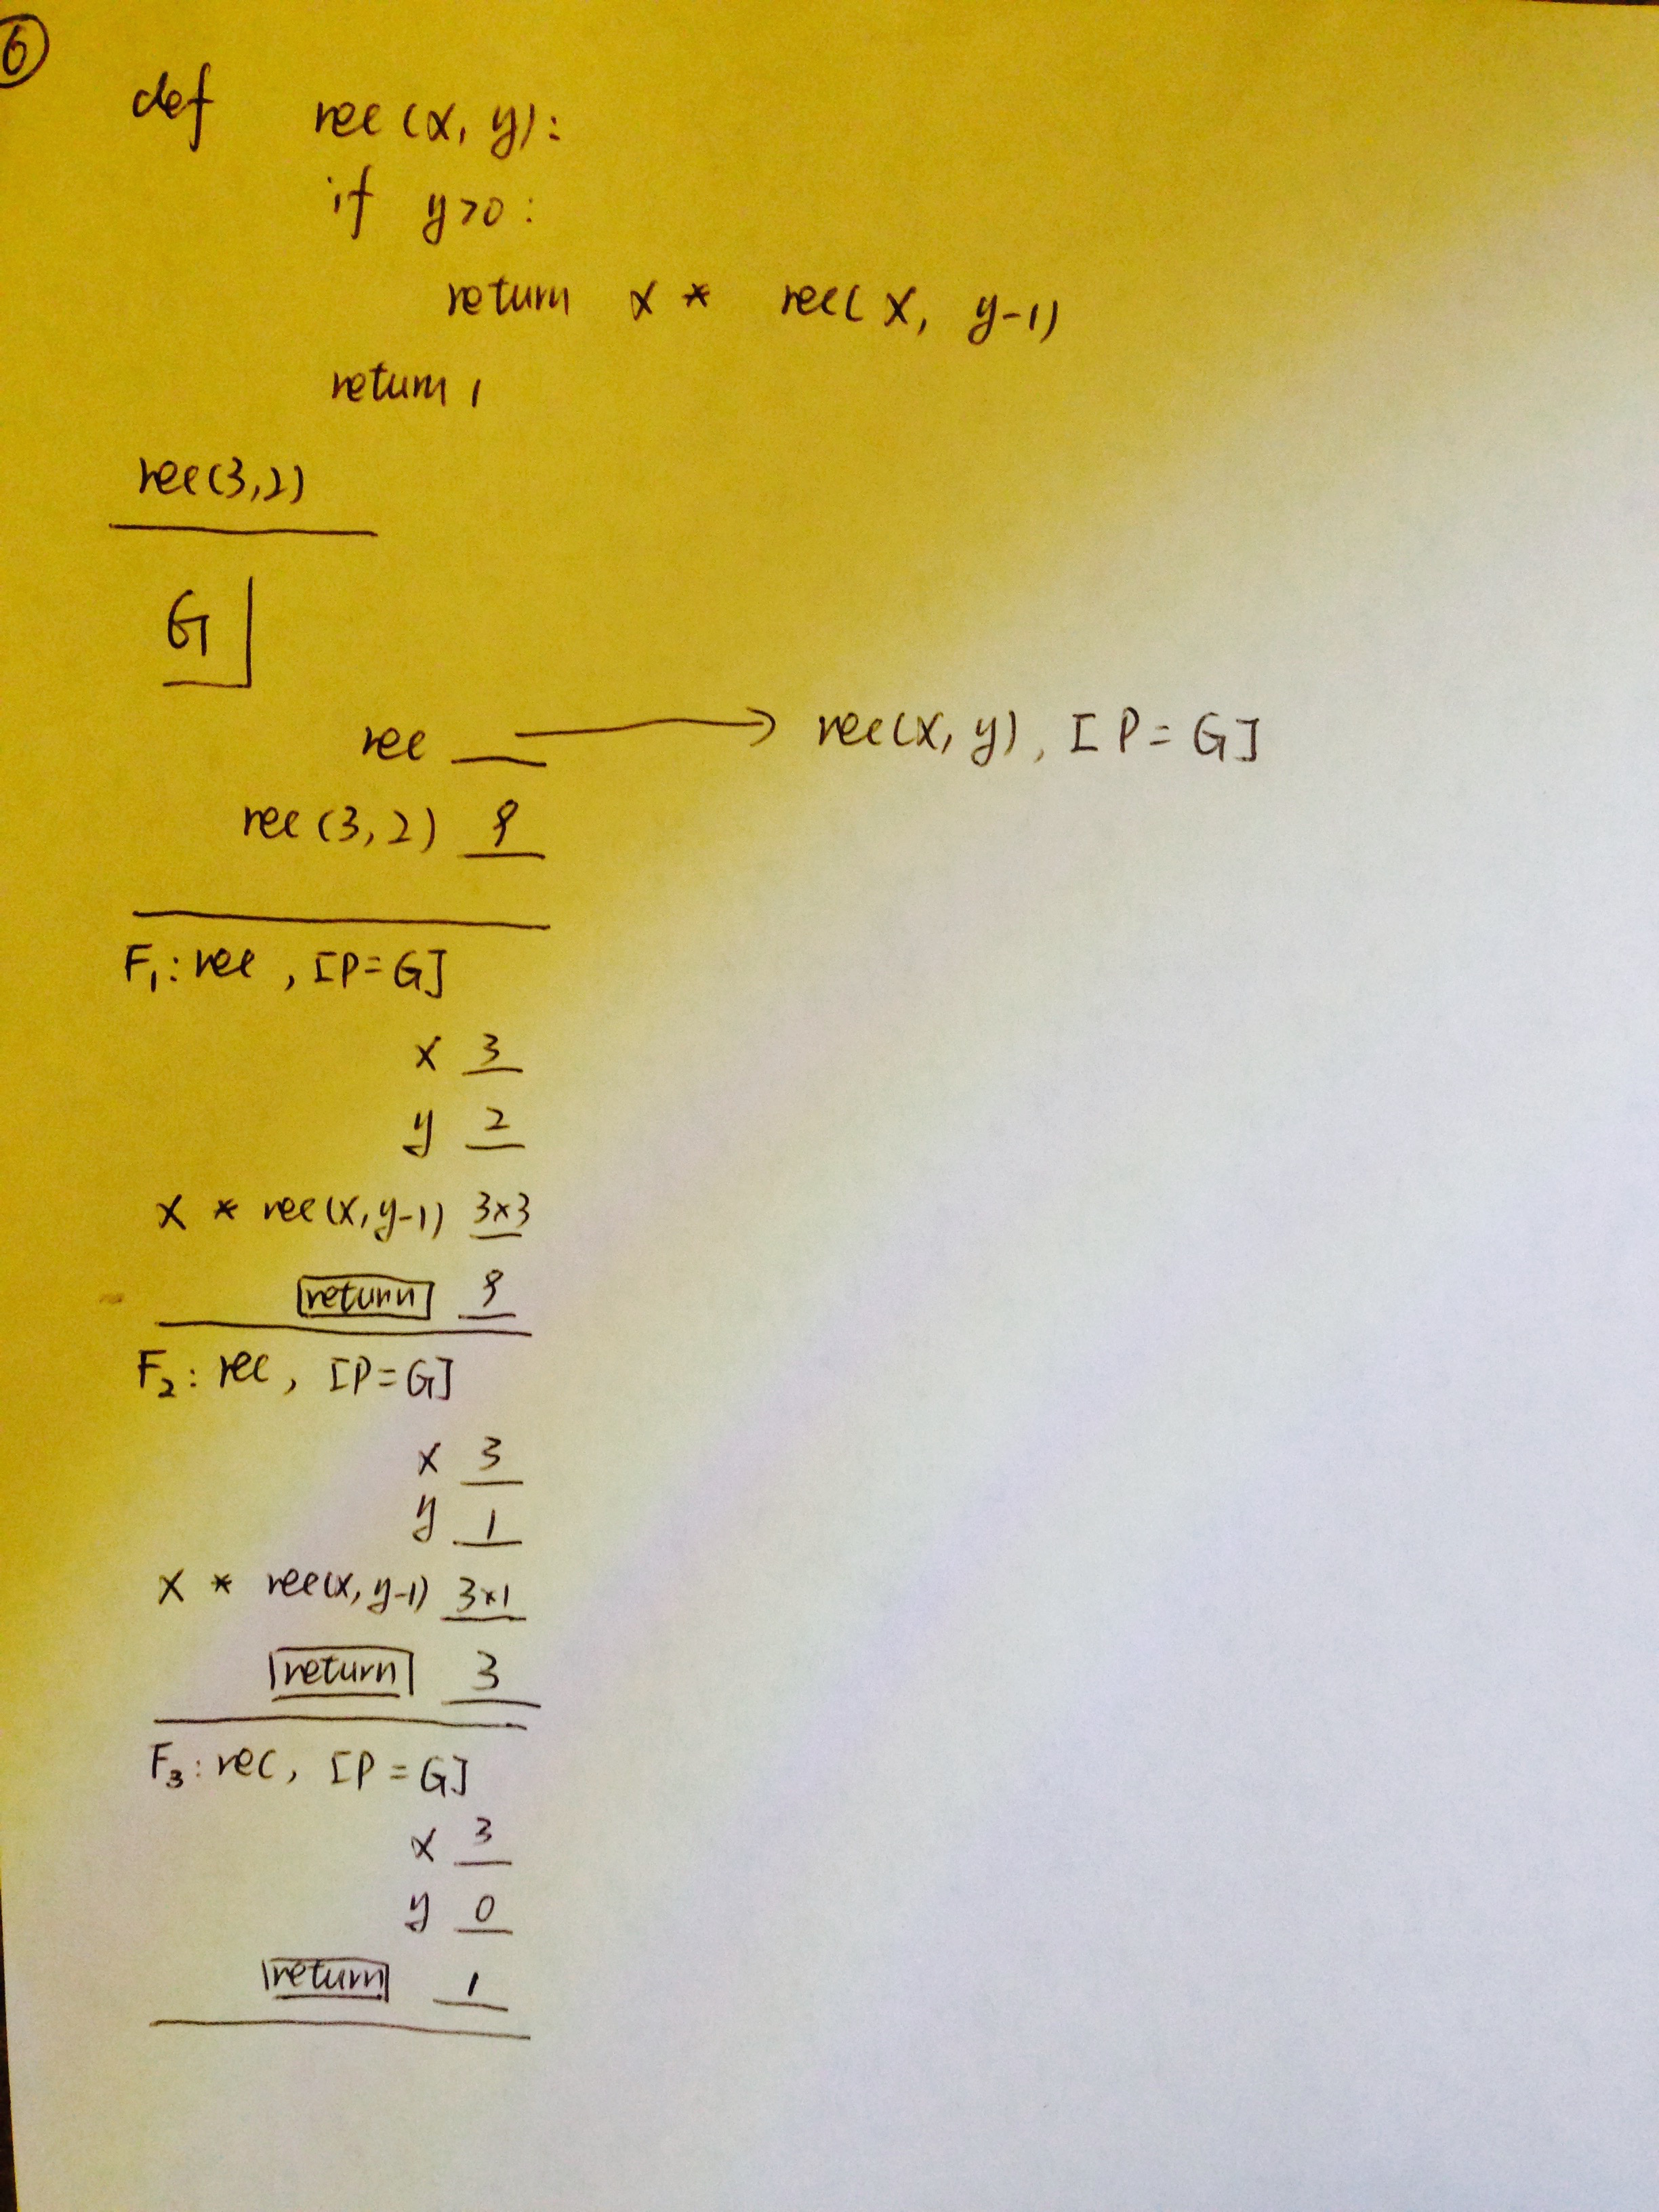 6
def rec(x, y):
if y>0:
return x * rec(x, y-1)
return 1
rec(3,2)
G
rec → rec(x, y), [P=G]
rec(3,2) 9
F₁: rec, [P=G]
x 3
y 2
x * rec(x, y-1) 3×3
return 9
F₂: rec, [P=G]
x 3
y 1
x * rec(x, y-1) 3×1
return 3
F₃: rec, [P=G]
x 3
y 0
return 1